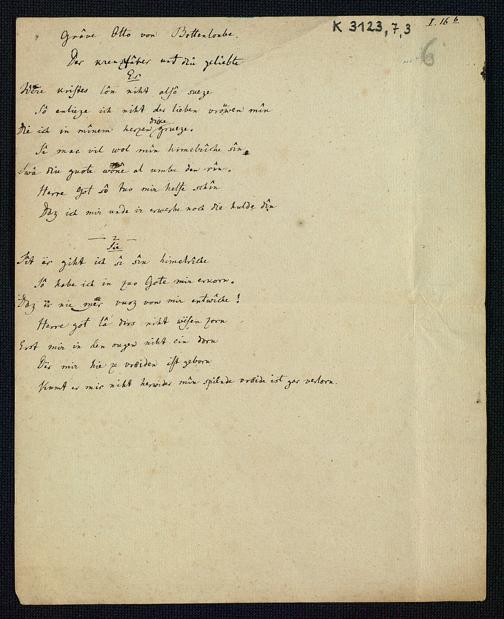 K 3123,7,3
I. 16 b.
6
Grâve Otto von Bottenloube.
Der kruzfärer und diu geliebte
Er
Wære kristes lôn niht alsô sueze
Sô enlieze ich niht der lieben vrôwen mîn
Die ich in mînem herzen dicke grueze.
Si mac vil wol mîn himelrîche sîn
Swâ diu guote wone al umbe den rîn.
Herre Got sô tuo mir helfe schîn
Daz ich mir unde ir erwerbe noch die hulde dîn
2
Sie
Sit er giht ich sî sîn himelrîche
Sô habe ich in zuo Gote mir erkorn.
Daz er nie mer vuoz von mir entwîche!
Herre got lâ dirs niht wesen zorn
Erst mir in den ougen niht ein dorn
Der mir hie ze vröiden ist geborn
Kumt er mir niht herwider mîn spilnde vröide ist gar verlorn.